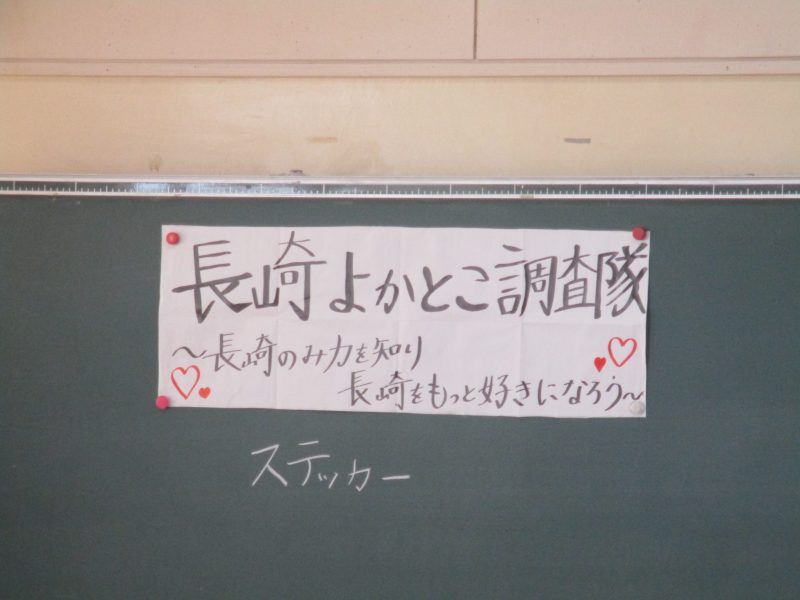 長崎よかとこ調査隊
～長崎のみ力を知り
長崎をもっと好きになろう～
ステッカー